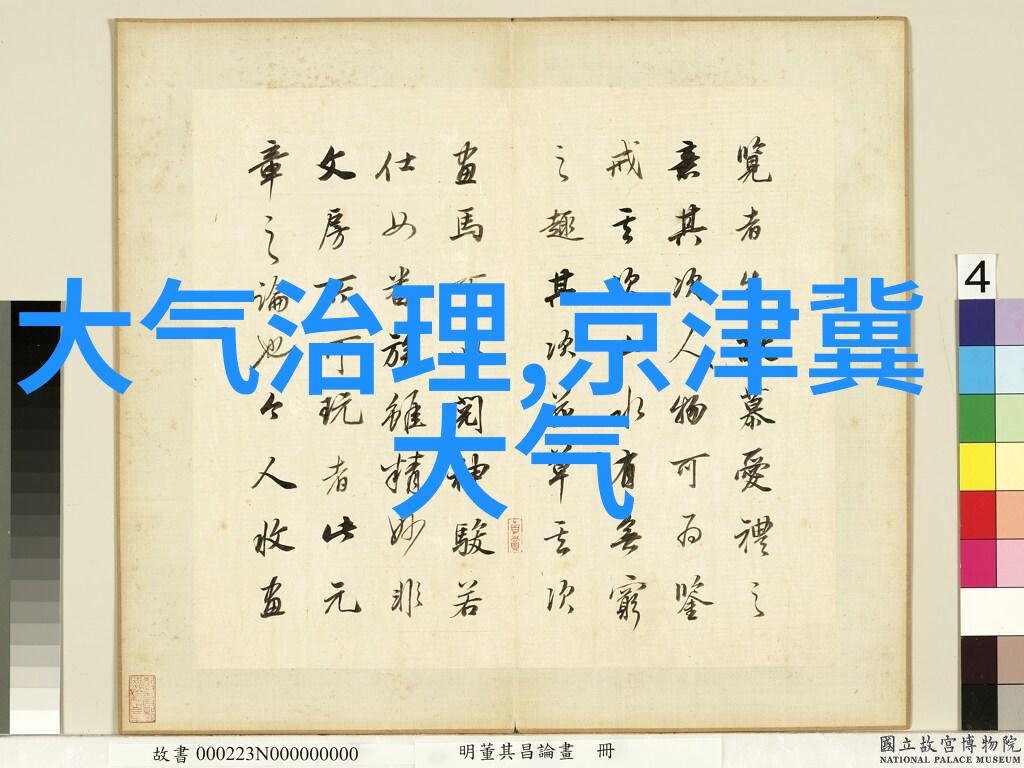 覽者慕愛禮之
意其次人物可為鑒
戒其次水有無窮
之趣其次花草其次
畫馬閱神駿若
仕女番族雖精妙非
文房所可玩者此元
章之論也今人收畫
大气治理,京津冀
大气
4
故書 000223N000000000
明董其昌論畫 冊
國立故宮博物院
NATIONAL PALACE MUSEUM